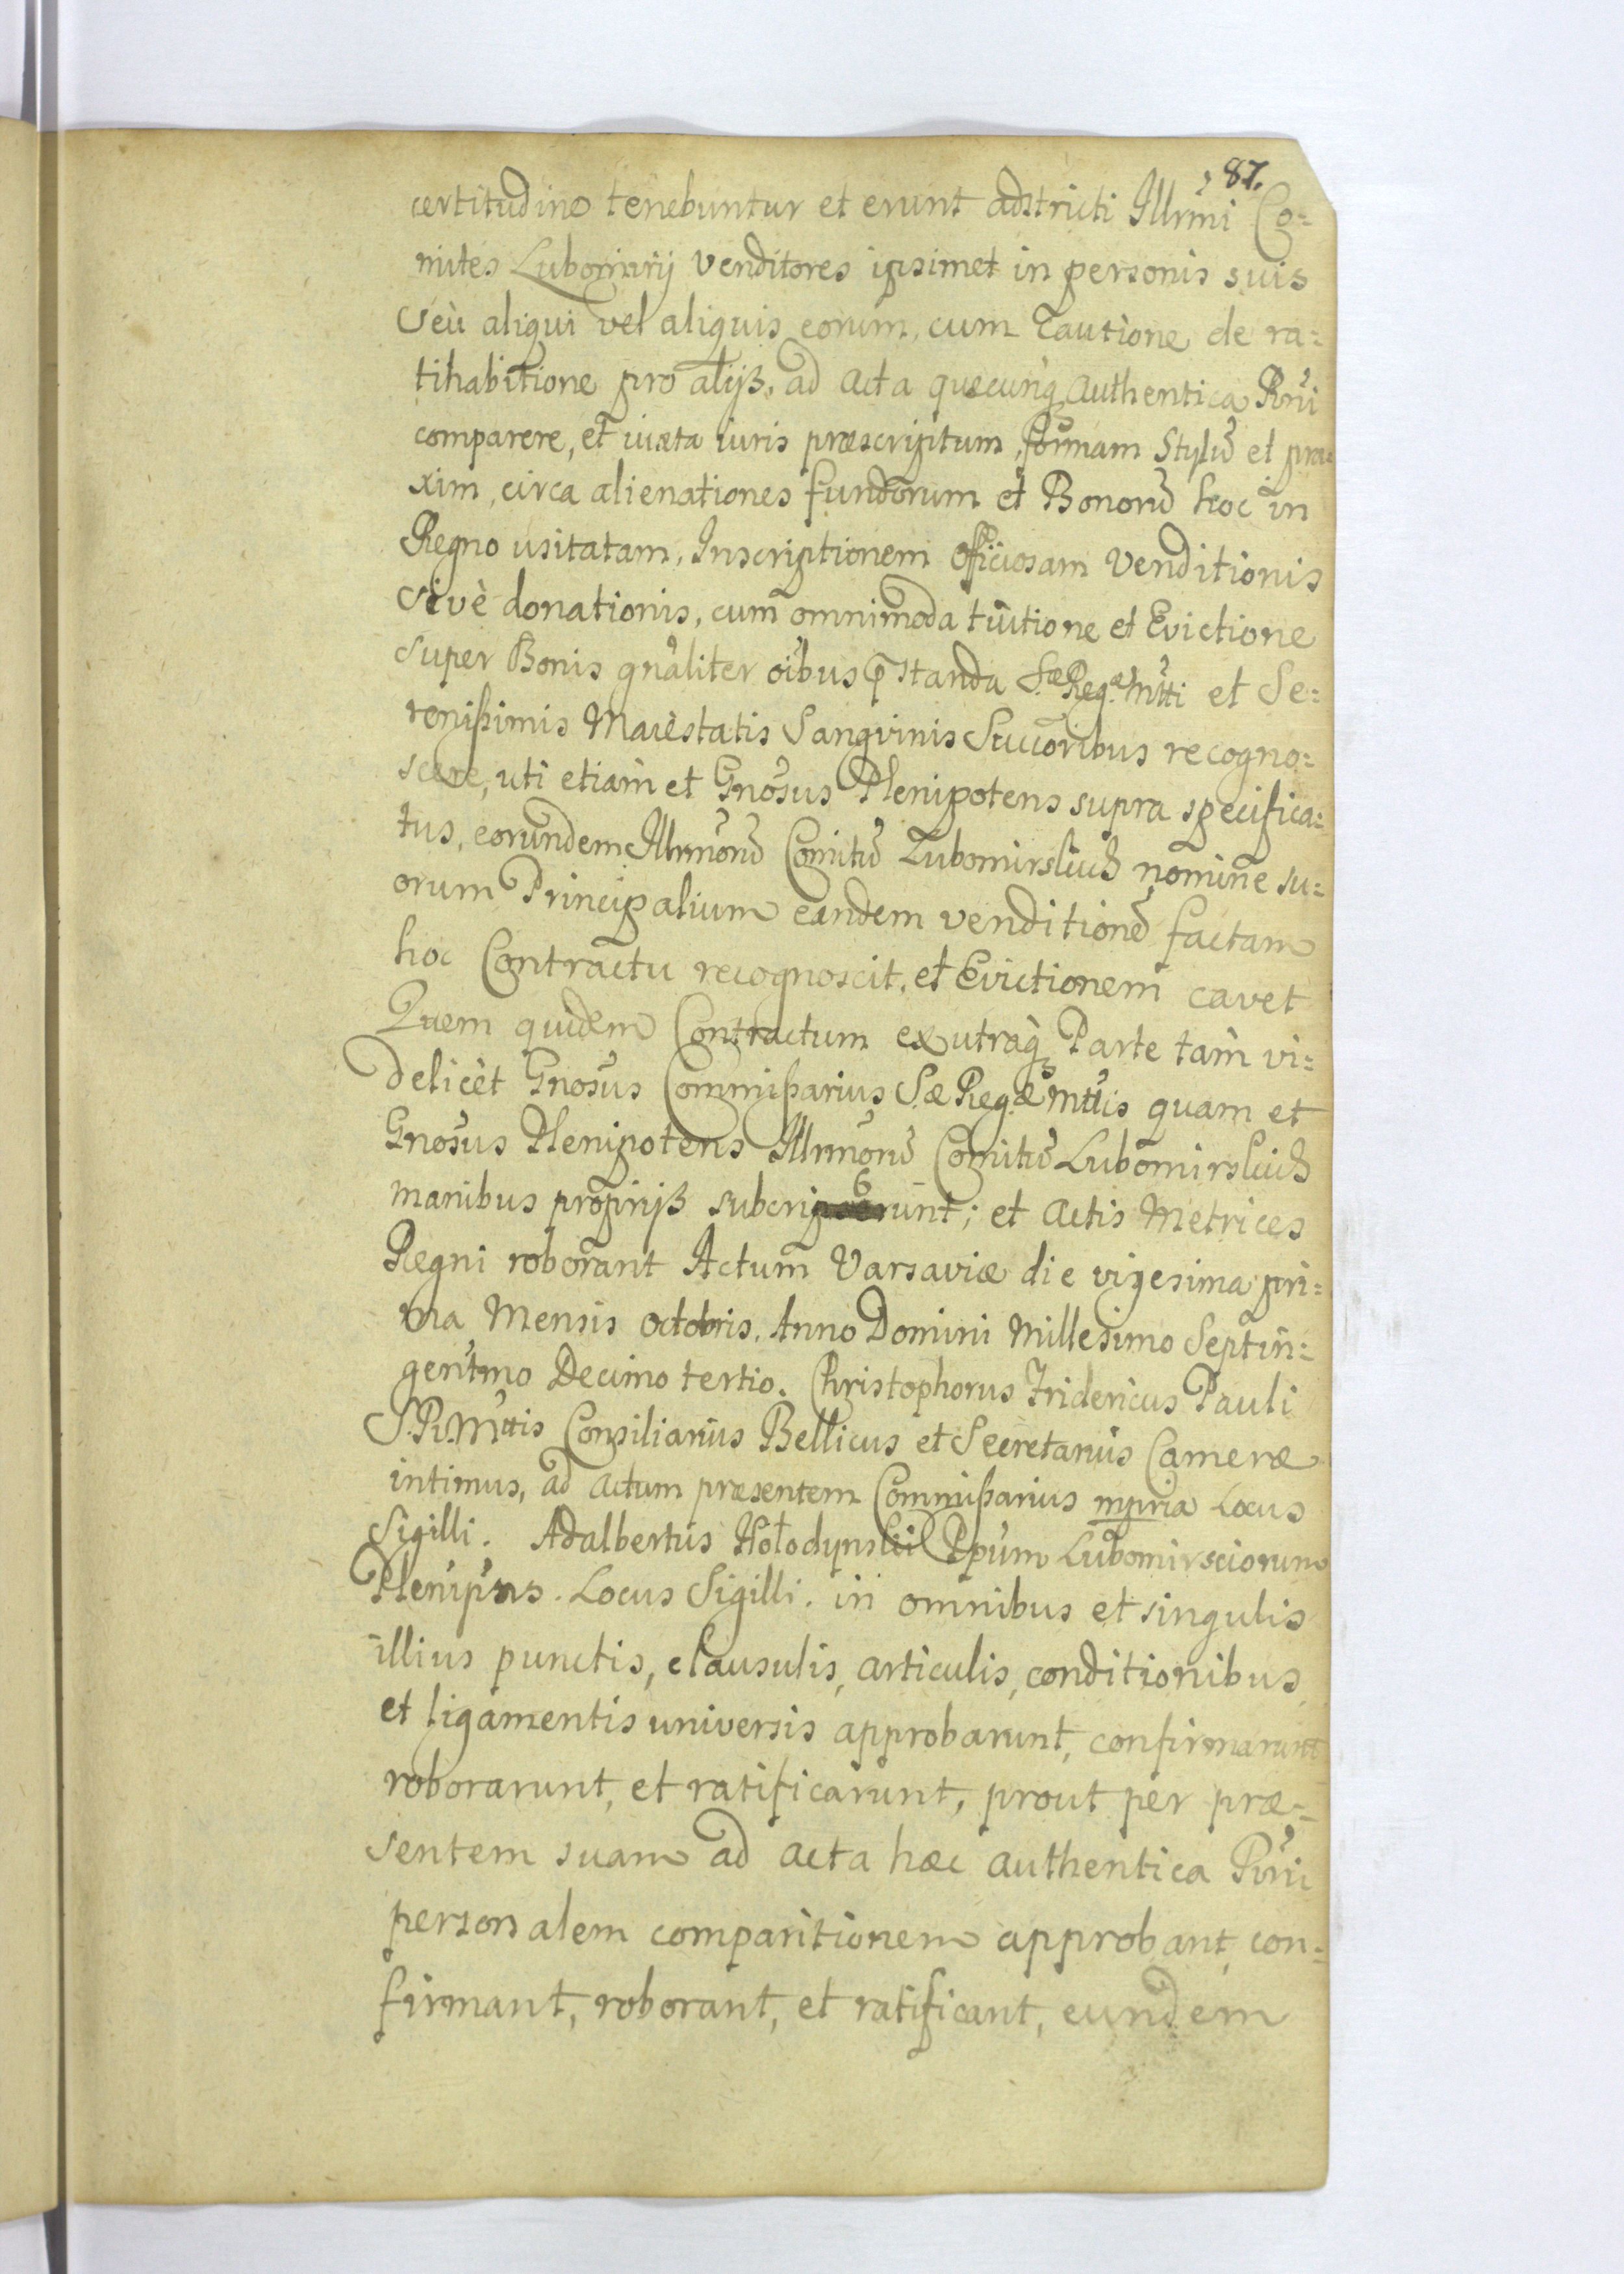 87.
certitudine tenebuntur et erunt adstricti Illrmi Co=
mites Lubomirij Venditores ipsimet in personis suis
Seù aliqui vel aliquis eorum, cum Cautione de ra=
tihabitione pro alijs, ad Acta quæcunq Authentica Rñi
comparere, et iuxta iuris præscriptum, formam Stylũ et pra=
xim, circa alienationes fundorum et Bonorũ hoc in
Regno usitatam, Inscriptionem Officiosam Venditionis
Sivè donationis, cum omnimoda tuitione et Evictione
super Bonis gñaliter oibus pstanda S.æ Reg.æ Mtti et Se=
renißimis Maiestatis Sangvinis Succoribus recogno=
scere, uti etiam et Gnosus Plenipotens supra specifica=
tus, eorundem Illrmorũ Comitũ Lubomirskich nomine su=
orum Principalium eandem venditionẽ factam
hoc Contractu recognoscit, et Evictionem cavet
Quem quidem Contractum ex utraq Parte tam vi=
delicèt Gnosus Commißarius S.æ Reg.æ Mttis quam et
Gnosus Plenipotens Illrmorũ Comitũ Lubomirskich
manibus proprijs subcrib runt; et Actis Metrices
Regni roborant Actum Varsaviæ die vigesima pri=
ma Mensis Octobris, Anno Domini Millesimo Septin=
gentmo Decimo tertio. Christophorus Fridericus Pauli
S.R.Mttis Consiliarius Bellicus et Secretarius Cameræ
intimus, ad Actum præsentem Commißarius mpria Locus
Sigilli. Adalbertus Hołodynski Ppum Lubomirsciorum
Plenipns. Locus Sigilli. in omnibus et singulis
illius punctis, clausulis, articulis, conditionibus
et ligamentis universis approbarunt, confirmarunt
roborarunt, et ratificarunt, prout per præ=
sentem suam ad acta hæc authentica Rñi
personalem comparitionem approbant, con=
firmant, roborant, et ratificant, eundem